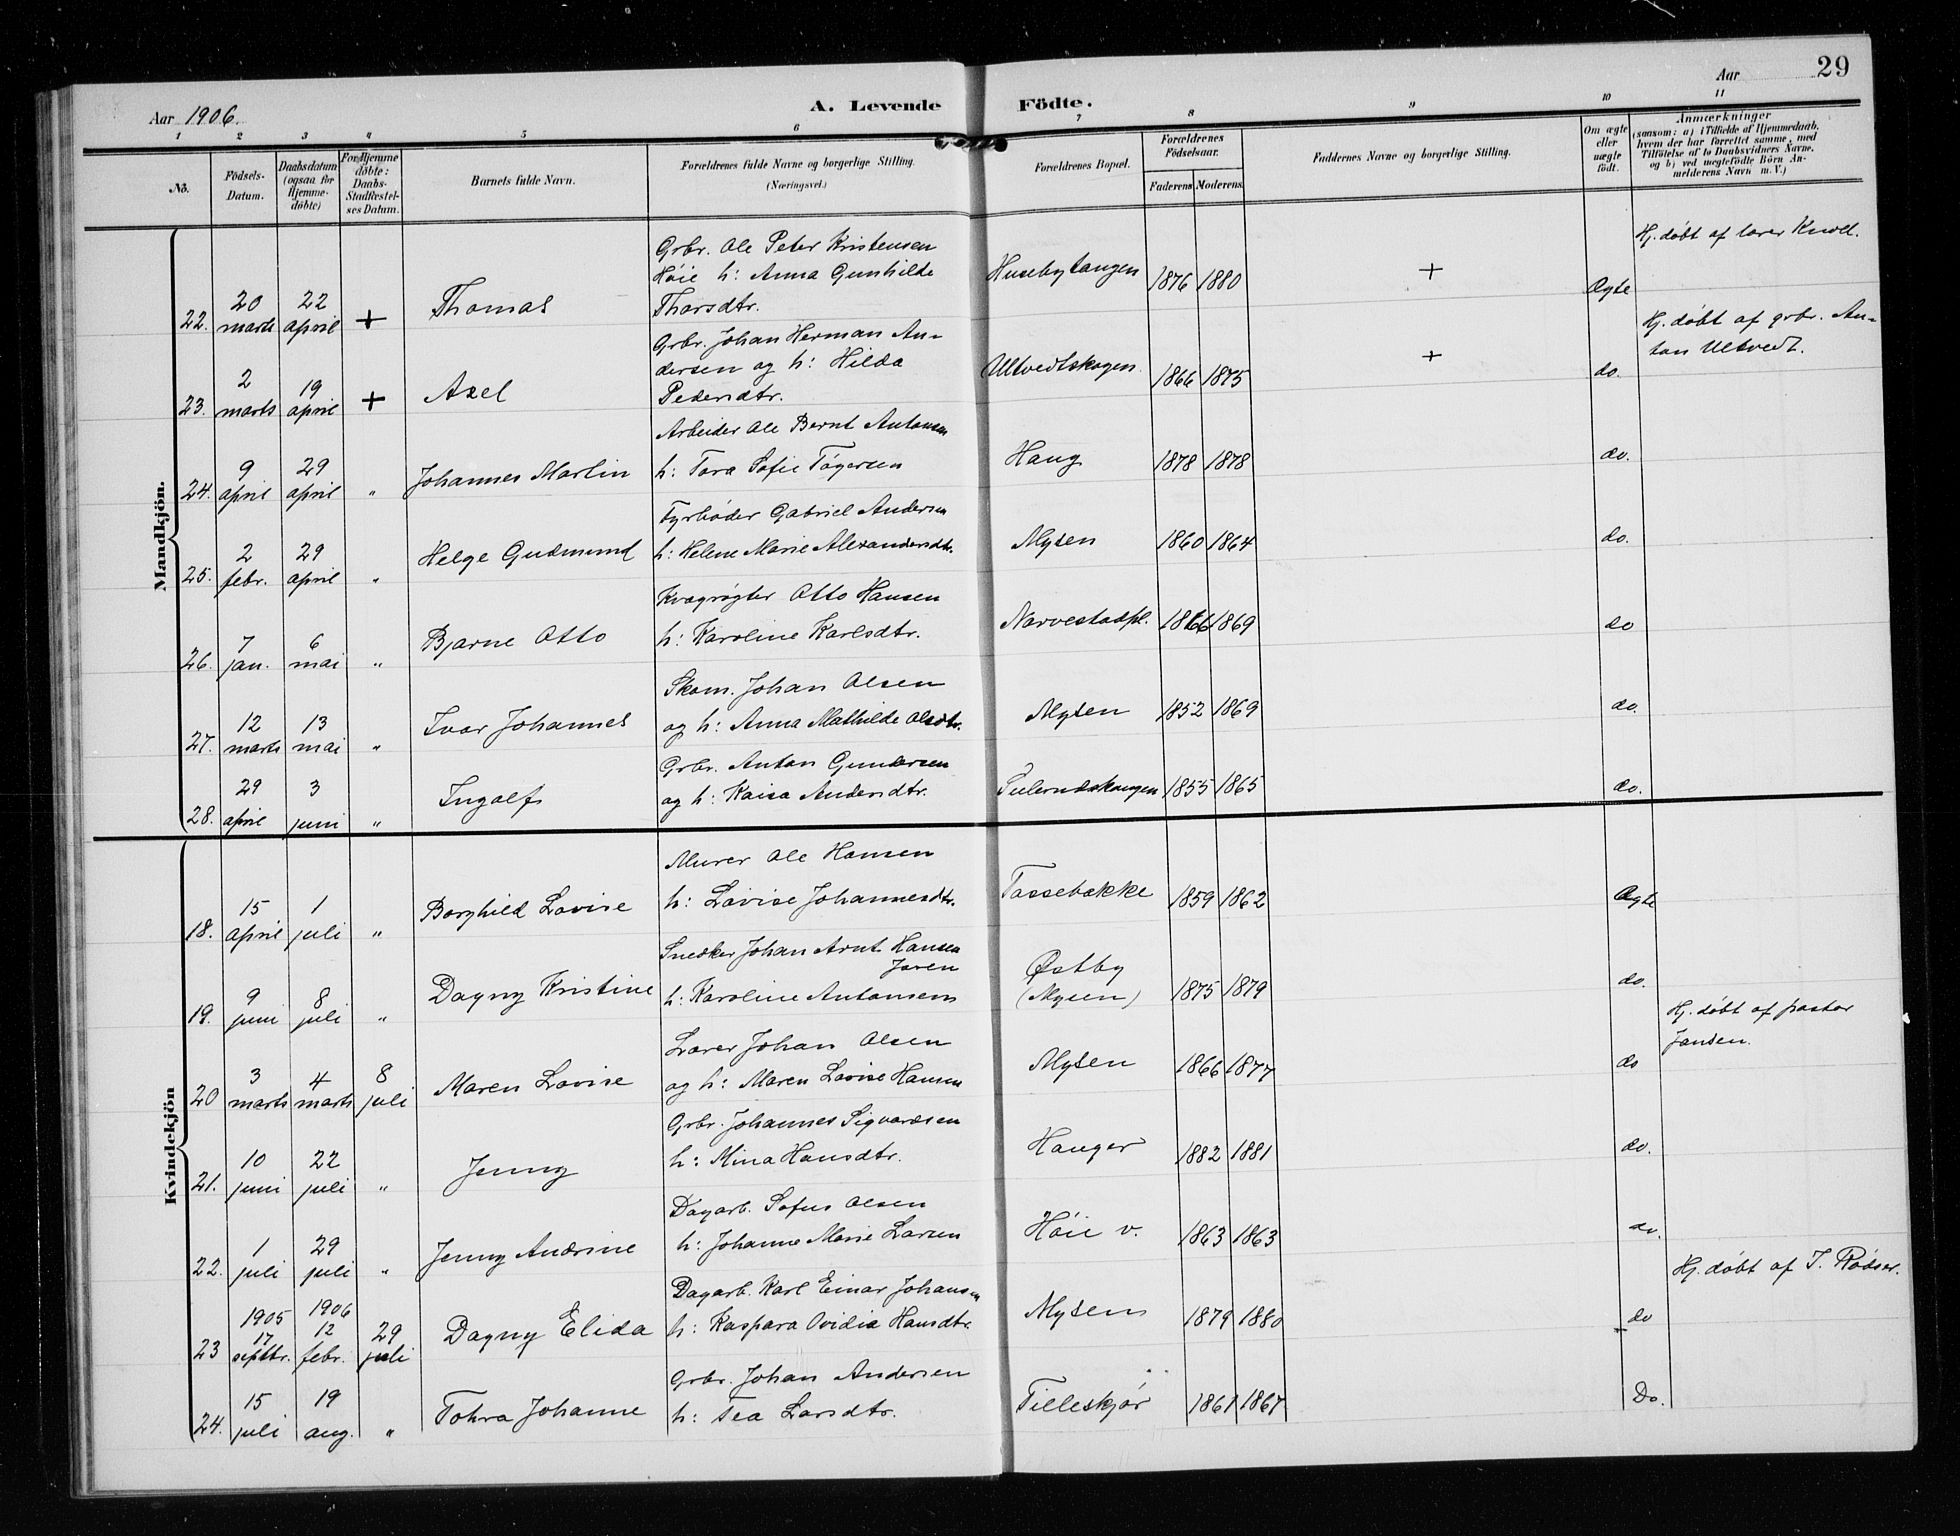 Aar 1906.
A. Levende Födte.
Aar 29
1 2 3 4 5 6 7 8 9 10 11
No.
Födsels-Datum.
Daabsdatum (ogsaa for Hjemme-döbte)
For Hjemme döbte: Daabs-Stadfestel-ses Datum.
Barnets fulde Navn.
Forældrenes fulde Navne og borgerlige Stilling.
(Næringsvei.)
Forældrenes Bopæl.
Forældrenes Födselsaar.
Faderens Moderens.
Faddernes Navne og borgerlige Stilling.
Om ægte eller uægte födt.
Anmærkninger
(saasom: a) i Tilfælde af Hjemmedaab,
hvem der har forrettet samme, med
Tilföielse af to Daabsvidners Navne,
og b) ved uægtefödte Börn An-
melderens Navn m. V.)
Mandkjön.
Grbr. Ole Peter Kristensen
Høie h: Anna Gunhilde
Thorsdtr.
22. 20 marts 22 april + Thomas Husebytangen 1876 1880 + Ægte Hj. døbt af lærer Knoll.
Grbr. Johan Herman An-
dersen og h: Hilda
Pedersdtr.
23. 2 marts 19 april + Axel Ultvedtskogen. 1866 1875 + do. Hj. døbt af grbr. An-
ton Ultvedt.
Arbeider Ole Bernt Antonsen
24. 9 april 29 april " Johannes Martin h: Tora Sofie Tøgersen Haug 1878 1878 do.
Fyrbøder Gabriel Andersen
25. 2 febr. 29 april " Helge Gudmund h: Helene Marie Alexandersdtr. Mysen 1860 1864 do.
Kvægrøgter Otto Hansen
26. 7 jan. 6 mai " Bjarne Otto h: Karoline Karlsdtr. Narvestadpl. 1866 1869 do
Skom. Johan Olsen
27. 12 marts 13 mai " Ivar Johannes og h: Anna Mathilde Olsdtr. Mysen 1852 1869 do.
Grbr. Anton Gundersen
28. 29 april 3 juni " Ingolf og h: Kaisa Andersdtr. 1855 1865 do.
Kvindekjön
Murer Ole Hansen
18. 15 april 1 juli " Borghild Lovise h: Lovise Johannesdtr. Tassebække 1859 1862 Ægte
Snedker Johan Arnt Hansen
Joren
19. 9 juni 8 juli " Dagny Kristine h: Karoline Antonsens Østby
(Mysen) 1875 1879 do.
Lærer Johan Olsen
20 3 marts 4 marts 8 juli Maren Lovise og h: Maren Lovise Hansen Mysen 1866 1877 do Hj. døbt af pastor
Jansen.
Grbr. Johannes Sigvardsen
21. 10 juni 22 juli " Jenny h: Mina Hansdtr. Hauger 1882 1881 do.
Dagarb. Sofus Olsen
22. 1 juli 29 juli " Jenny Andrine h: Johanne Marie Larsen Høie v. 1863 1863 do.
Dagarb. Karl Einar Johansen
23 1905 17 septbr. 1906 12 febr. 29 juli Dagny Elida h: Kaspara Ovidia Hansdtr. Mysen 1879 1880 do Hj. døbt af I. Rødser.
Grbr. Johan Andersen
24. 15 juli 19 aug. " Tohra Johanne h: Tea Larsdtr. Tilleskjør 1861 1867 Do.